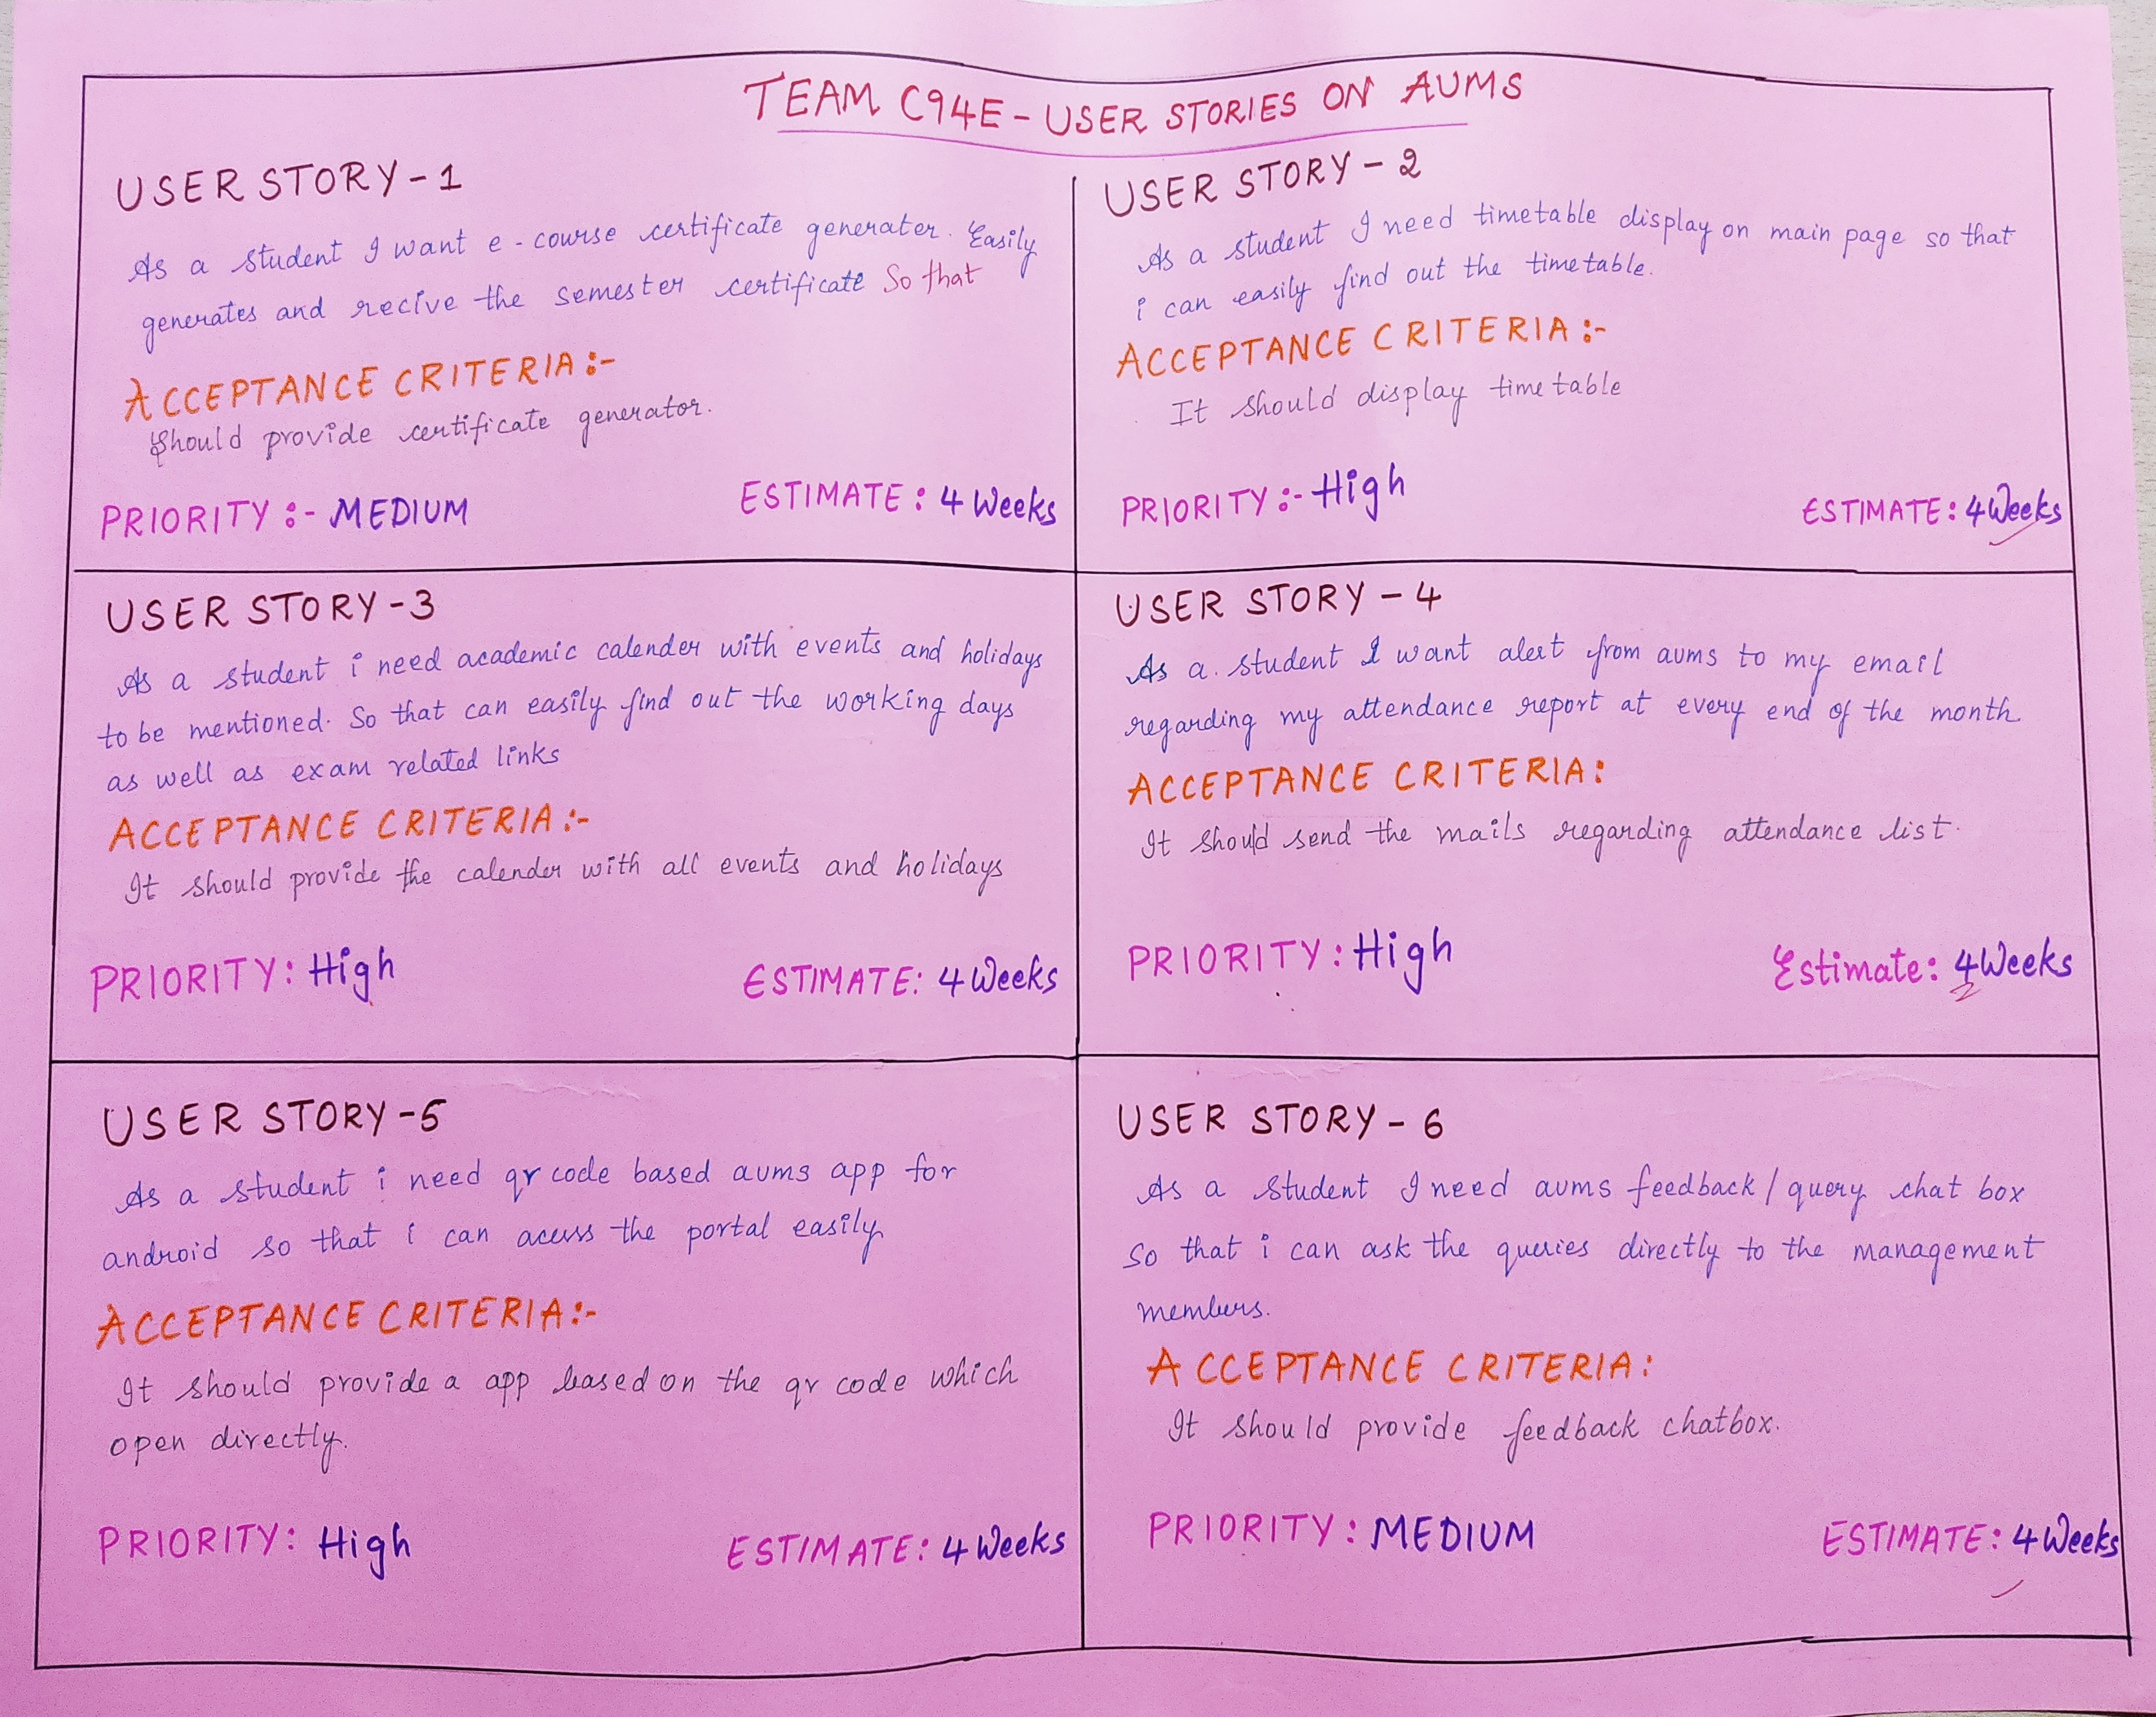 TEAM C94E - USER STORIES ON AUMS
USER STORY - 1
As a student I want e - course certificate generater. Easily
generates and recive the semester certificate So that
ACCEPTANCE CRITERIA :-
Should provide certificate generator.
PRIORITY :- MEDIUM
ESTIMATE : 4 Weeks
USER STORY - 2
As a student I need timetable display on main page so that
i can easily find out the timetable.
ACCEPTANCE CRITERIA :-
It should display timetable
PRIORITY :- High
ESTIMATE : 4 Weeks
USER STORY - 3
As a student i need academic calender with events and holidays
to be mentioned. So that can easily find out the working days
as well as exam related links
ACCEPTANCE CRITERIA :-
It should provide the calender with all events and holidays
PRIORITY : High
ESTIMATE : 4 Weeks
USER STORY - 4
As a student I want alert from aums to my email
regarding my attendance report at every end of the month.
ACCEPTANCE CRITERIA :
It should send the mails regarding attendance list.
PRIORITY : High
Estimate : 4 Weeks
2
USER STORY - 5
As a student i need qr code based aums app for
android so that i can acess the portal easily
ACCEPTANCE CRITERIA :-
It should provide a app based on the qr code which
open directly.
PRIORITY : High
ESTIMATE : 4 Weeks
USER STORY - 6
As a student I need aums feedback / query chat box
so that i can ask the queries directly to the management
members.
ACCEPTANCE CRITERIA :
It should provide feedback chatbox.
PRIORITY : MEDIUM
ESTIMATE : 4 Weeks